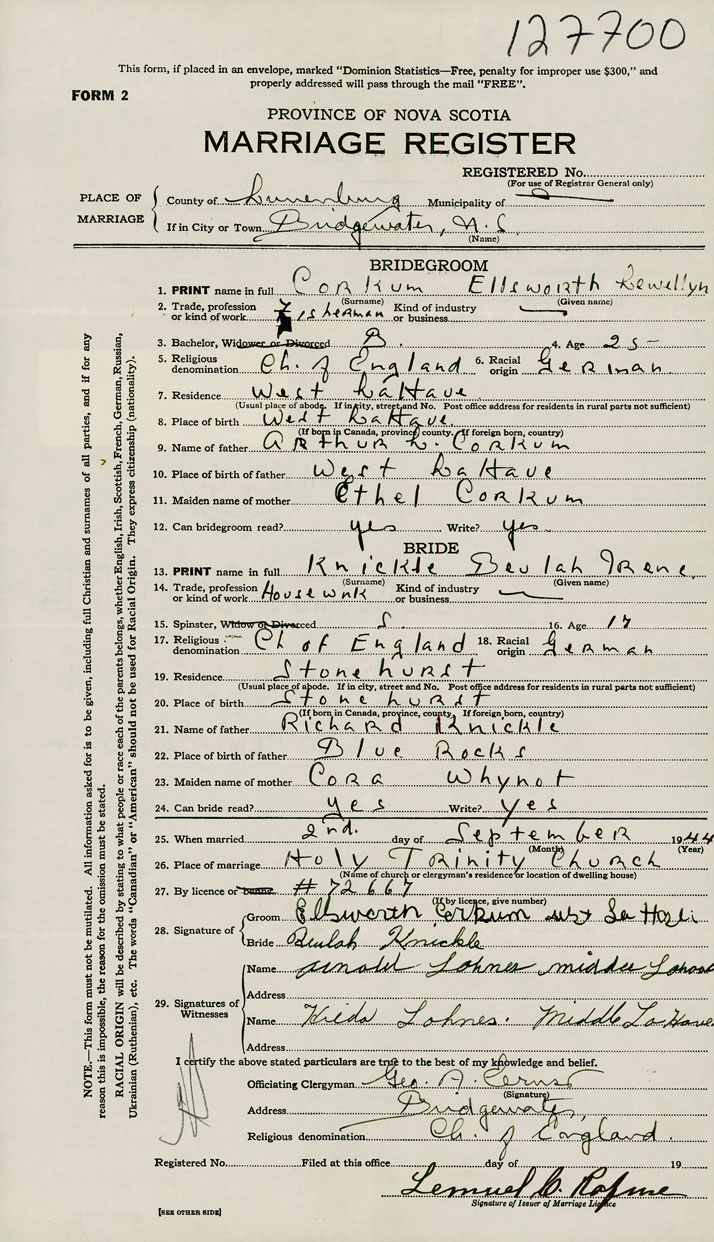 127700
This form, if placed in an envelope, marked "Dominion Statistics—Free, penalty for improper use $300," and
properly addressed will pass through the mail "FREE".
FORM 2
PROVINCE OF NOVA SCOTIA
MARRIAGE REGISTER
REGISTERED No.
(For use of Registrar General only)
PLACE OF MARRIAGE
County of Lunenburg Municipality of
If in City or Town Bridgewater, N.S.
(Name)
BRIDEGROOM
1. PRINT name in full Corkum Ellsworth Lewellyn
(Surname) (Given name)
2. Trade, profession or kind of work Fisherman Kind of industry or business
3. Bachelor, Widower or Divorced B. 4. Age 25
5. Religious denomination Ch. of England 6. Racial origin German
7. Residence West LaHave
(Usual place of abode. If in city, street and No. Post office address for residents in rural parts not sufficient)
8. Place of birth West LaHave
(If born in Canada, province, county. If foreign born, country)
9. Name of father Arthur L. Corkum
10. Place of birth of father West LaHave
11. Maiden name of mother Ethel Corkum
12. Can bridegroom read? yes Write? yes
BRIDE
13. PRINT name in full Knickle Beulah Irene
(Surname) (Given name)
14. Trade, profession or kind of work Housework Kind of industry or business
15. Spinster, Widow or Divorced S. 16. Age 17
17. Religious denomination Ch of England 18. Racial origin German
19. Residence Stonehurst
(Usual place of abode. If in city, street and No. Post office address for residents in rural parts not sufficient)
20. Place of birth Stonehurst
(If born in Canada, province, county. If foreign born, country)
21. Name of father Richard Knickle
22. Place of birth of father Blue Rocks
23. Maiden name of mother Cora Whynot
24. Can bride read? yes Write? yes
25. When married 2nd. day of September 1944
(Month) (Year)
26. Place of marriage Holy Trinity Church
(Name of church or clergyman's residence or location of dwelling house)
27. By licence or banns # 72667
(If by licence, give number)
28. Signature of
Groom Ellsworth Corkum West
Bride Beulah Knickle
29. Signatures of Witnesses
Name Arnold Lohnes Middle
Address
Name Hilda Lohnes. Middle LaHave
Address
I certify the above stated particulars are true to the best of my knowledge and belief.
Officiating Clergyman Geo. A. Ernst
(Signature)
Address Bridgewater,
Religious denomination Ch. of England.
Registered No. Filed at this office day of 19
Lemuel
Signature of Issuer of Marriage Licence
[SEE OTHER SIDE]
NOTE.—This form must not be mutilated. All information asked for is to be given, including full Christian and surnames of all parties, and if for any
reason this is impossible, the reason for the omission must be stated.
RACIAL ORIGIN will be described by stating to what people or race each of the parents belongs, whether English, Irish, Scottish, French, German, Russian,
Ukrainian (Ruthenian), etc. The words "Canadian" or "American" should not be used for Racial Origin. They express citizenship (nationality).